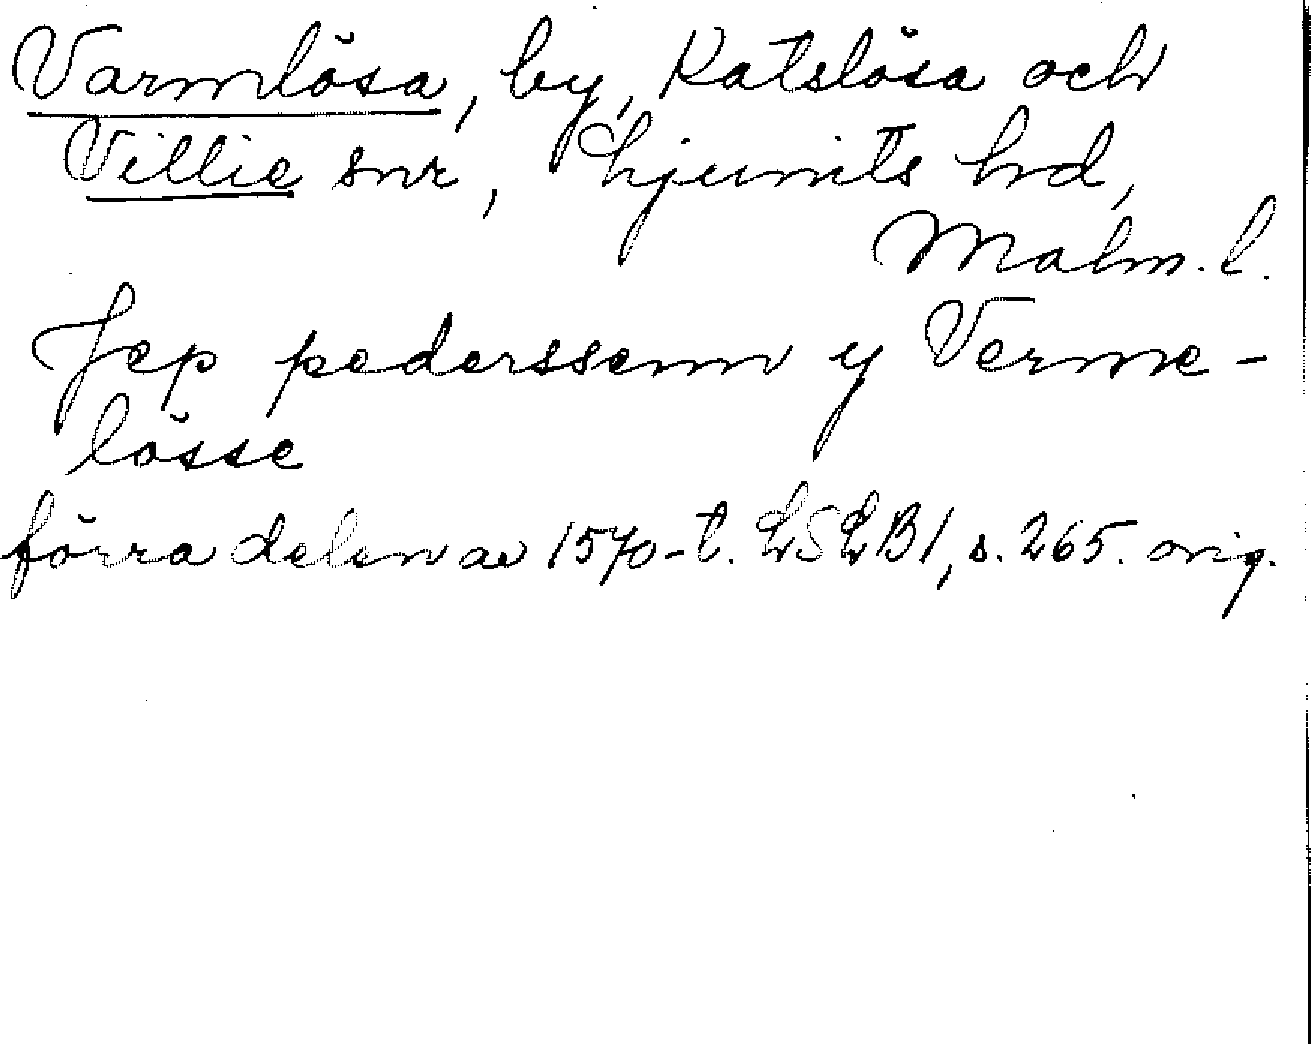 Varmlösa, by, Katslösa och
Villie snr, Ljunits hrd,
Malm. l.
Jep pederssenn y Verme-
lösse
förra delen av 1570-t. LSLB1, s. 265. orig.